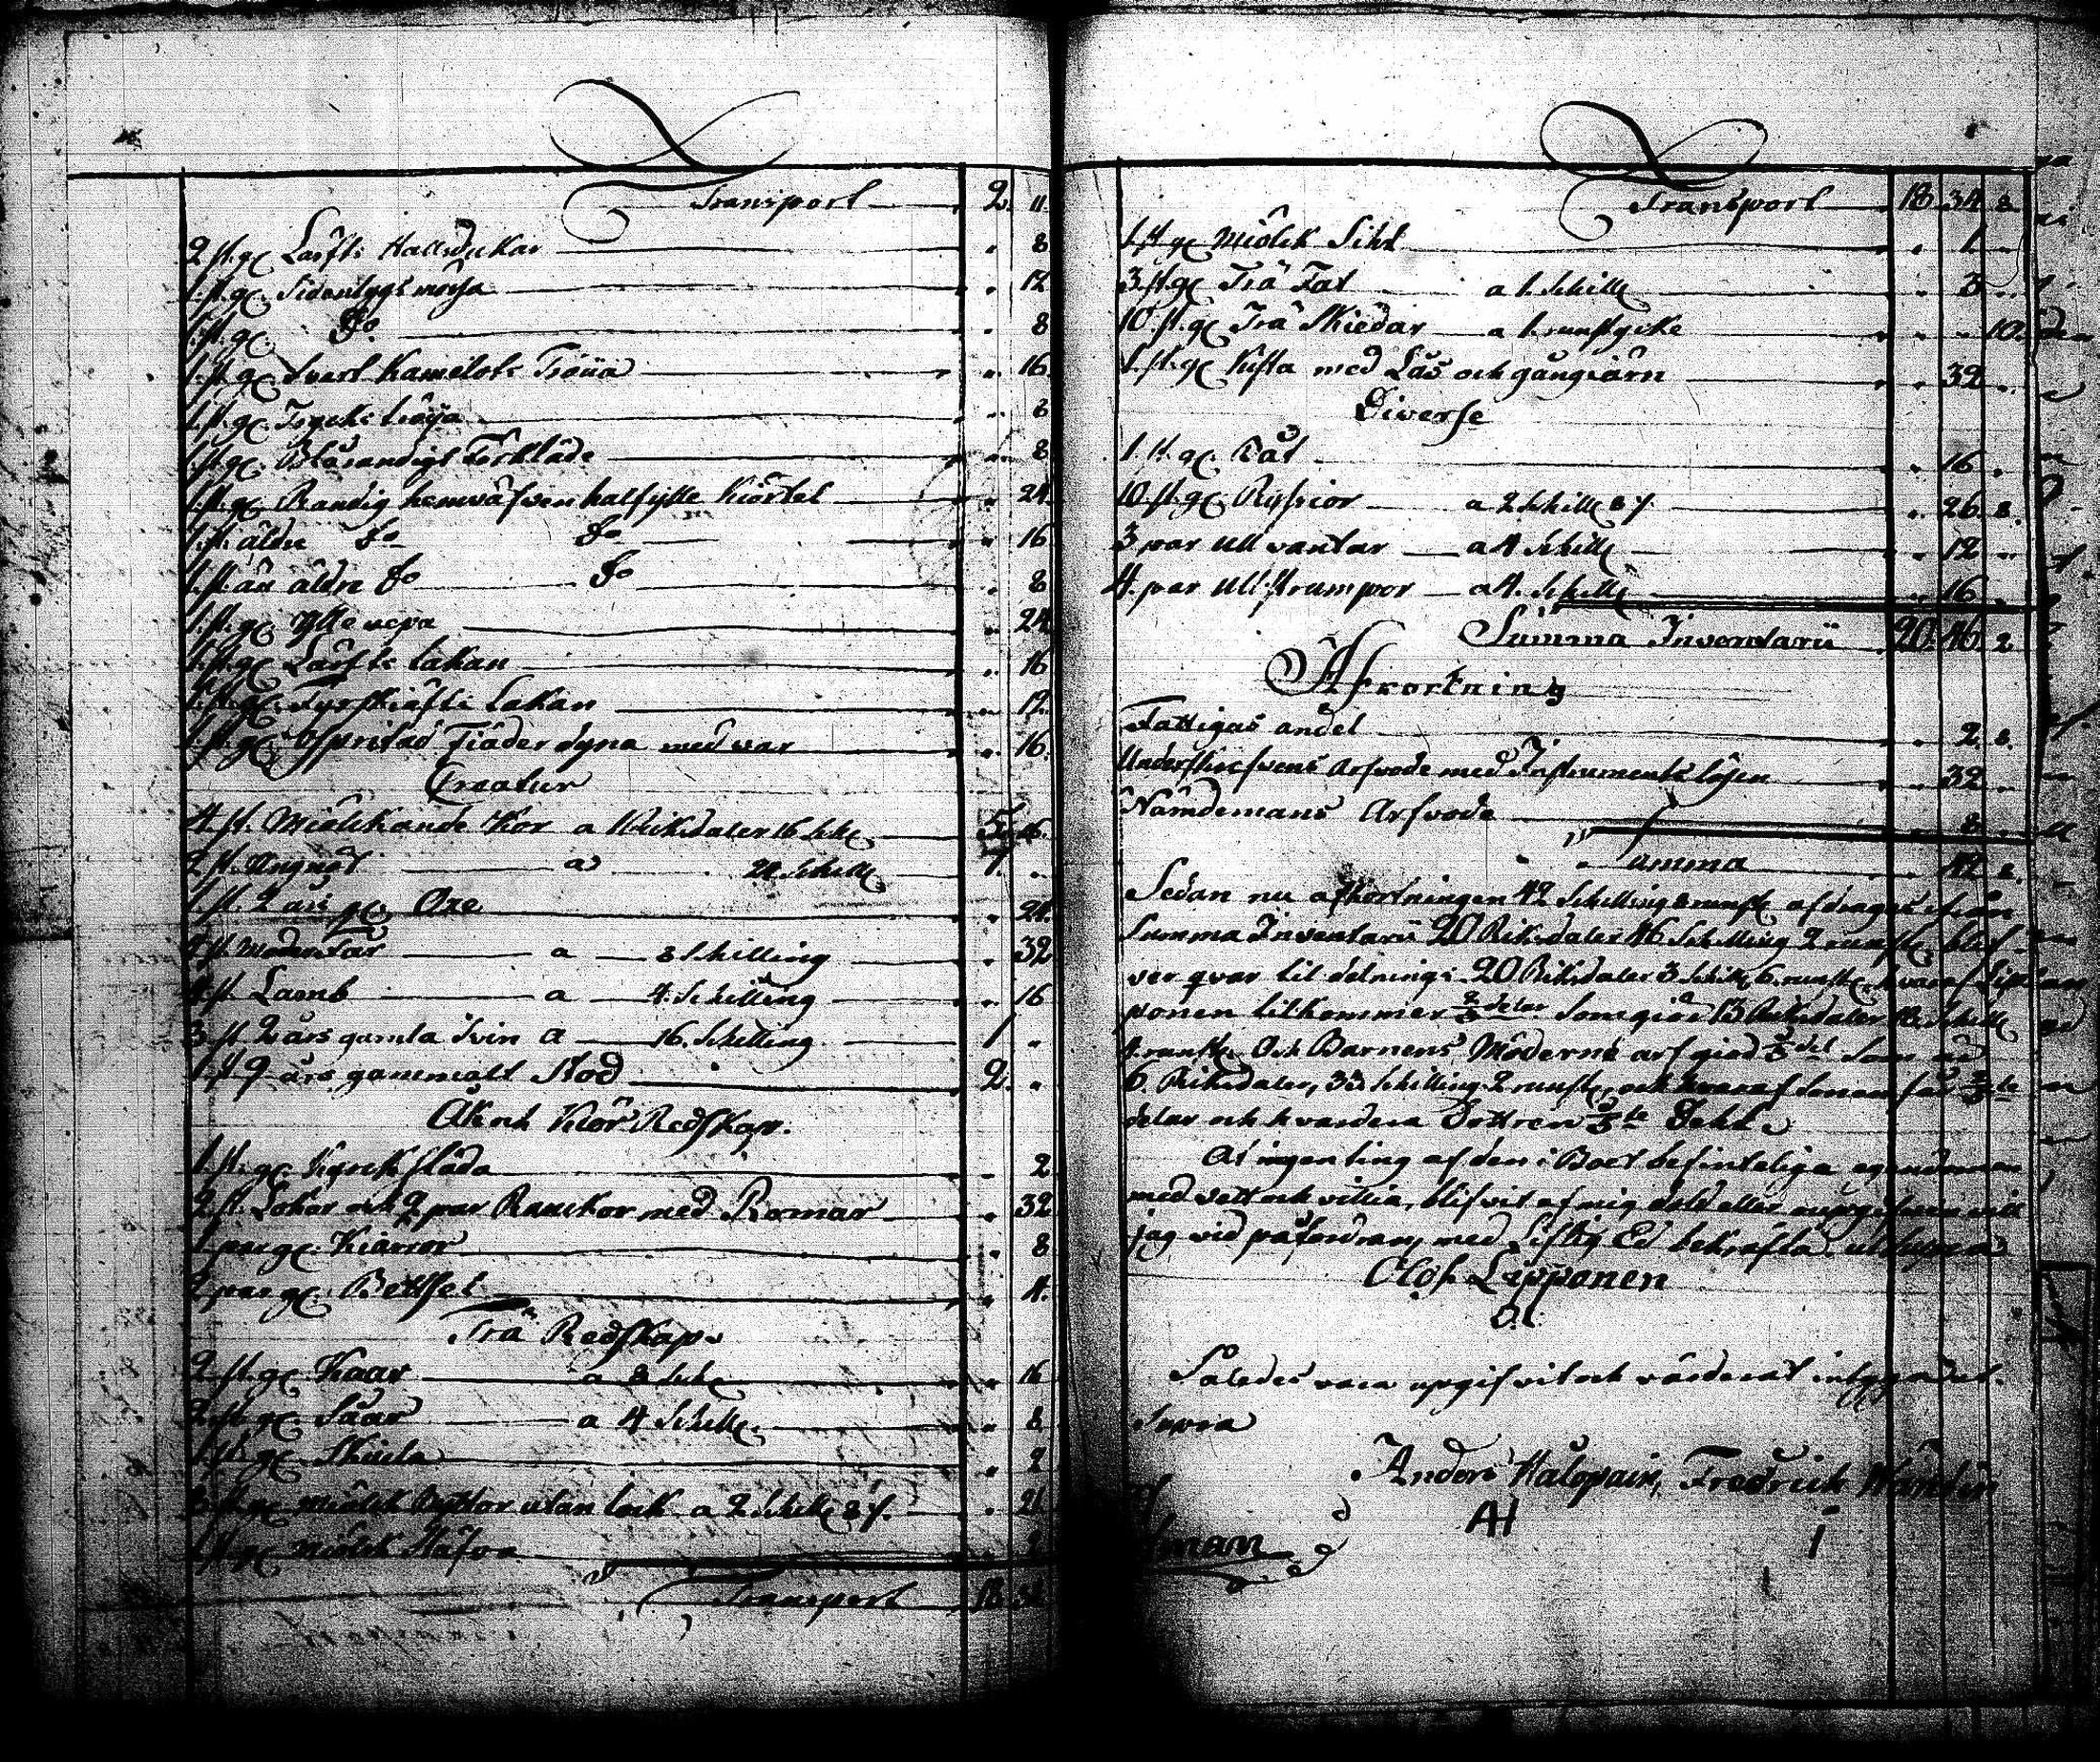 Transport 2. 11.
2 st. gl. Lärfts Halsdukar " 8
1. st. gl. Sidentygs mössa " 12
1. st. gl. Do " 8
1. st. gl. Svart Kamelots Tröija " 16
1. st. gl. Tröija " 8
1. st. gl. Blårandigt Förkläde " 8
1. st. gl. Randig hemväfven halfylle Kiortel " 24
1. st. äldre Do Do " 16
1. st. än äldre Do Do " 8
1. st. gl. Ylle vepa " 24
1. st. gl. Lärfts Lakan " 16
1. st. gl. Fyrskiäfts Lakan " 12
1. st. gl. Fiäder dyna med var " 16
Creatur
4 st. Miölckande Kor a 1 Riksdaler 16 sk. 5. 16.
2 st. Ungnöt a 24 Schill. 1. "
1 st. 2 års gl. Oxe " 24
4 st. Moder Får a 8 Schilling " 32
4 st. Lamb a 4. Schilling " 16
3 st. 2 års gamla Svin a 16. Schilling 1 "
1 st. 9 års gammalt Stod 2. "
Åk och Kiör Redskap.
1 st. gl. Kyrck släda " 2
2 st. Lokor och 2 par Ranckor med Remar " 32
1 par gl. Kiärror " 8
2 par gl. Bettsel " 4.
Trä Redskap.
2 st. gl. Kaar a 8 Sch. " 16
2 st. gl. Såar a 4 Schill. " 8
1 st. gl. Skiula " 2
3 st. gl. Miölck Byttor utan lock a 2 Schill. 8 r.
1 st. gl. Miölck Stäfva
Transport 18
Transport 18. 34 8
1. st. gl. Miölck Sihl " 1 "
3. st. gl. Trä Fat a 1. Schill. " 3 "
10. st. gl. Trä Skiedar a 1. runstycke " " 10.
1. st. gl. Kista med Lås och gångiärn " 32 "
Diverse
1. st. gl. Båt " 16 "
10. st. gl. Ryssior a 2 Schill. 8 r. " 26. 8.
3 par Ull vantar a 4 Schill. " 12 "
4. par Ull strumpor a 4. Schill. " 16 "
Summa Inventarii 20. 46. 2
Afkortning
Fattigas andel " 2. 8.
Underskrefvens Arfvode med Instruments lösen " 32 "
Nämdemans Arfvode " 8 "
Summa " 42 8.
Sedan nu afkortningen 42 Schilling 8 runst. afdrages ifrån
Summa Inventarii 20 Riksdaler 46 Schilling 2 runst. blif
ver qvar til delning: 20 Riksdaler 3 Schill. 6. runst. hvaraf Lip
ponen tilkommer 2/3 delar som giör 13 Riksdaler Schill.
4. runst. Och Barnens Möderne arf giör 1/3 del som
6. Riksdaler, 33 Schilling 2 runst., och hvaraf sonen får
delar och hvardera Dottren Dehl.
At ingen ting af den i Boet befinteliga egendomen
med vett och villia, blifvit af mig döld eller vill
jag vid påfordran, med Liflig Ed bekräfta
Olof Lipponen
O.L
Således vara upgifvit och värderat intyga
Supra
Anders Halopain, Fredrick
AH
man